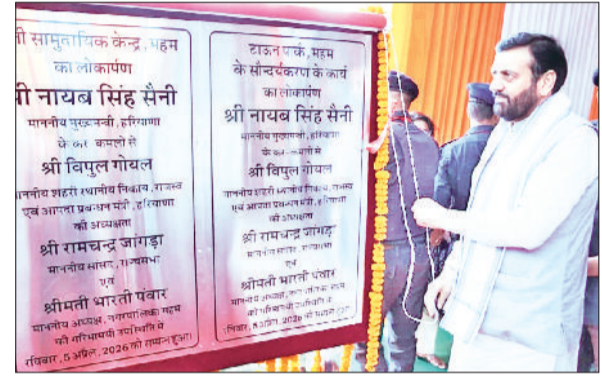 सामुदायिक केन्द्र, महम
का लोकार्पण
श्री नायब सिंह सैनी
माननीय मुख्यमन्त्री, हरियाणा
के कर कमलों से
श्री विपुल गोयल
माननीय शहरी स्थानीय निकाय, राजस्व
एवं आपदा प्रबन्धन मंत्री, हरियाणा
की अध्यक्षता
श्री रामचन्द्र जांगड़ा
माननीय सांसद, राज्यसभा
एवं
श्रीमती भारती पंवार
माननीय अध्यक्ष, नगरपालिका महम
की गरिमामयी उपस्थिति में
रविवार, 5 अप्रैल, 2026 को सम्पन्न हुआ।
टाऊन पार्क, महम
के सौन्दर्यकरण के कार्य
का लोकार्पण
श्री नायब सिंह सैनी
माननीय मुख्यमन्त्री, हरियाणा
के कर-कमलों से
श्री विपुल गोयल
माननीय शहरी स्थानीय निकाय, राजस्व
एवं आपदा प्रबन्धन मंत्री, हरियाणा
की अध्यक्षता
श्री रामचन्द्र जांगड़ा
माननीय सांसद, राज्यसभा
एवं
श्रीमती भारती पंवार
माननीय अध्यक्ष, नगरपालिका महम
की गरिमामयी उपस्थिति में
रविवार, 5 अप्रैल, 2026 को सम्पन्न हुआ